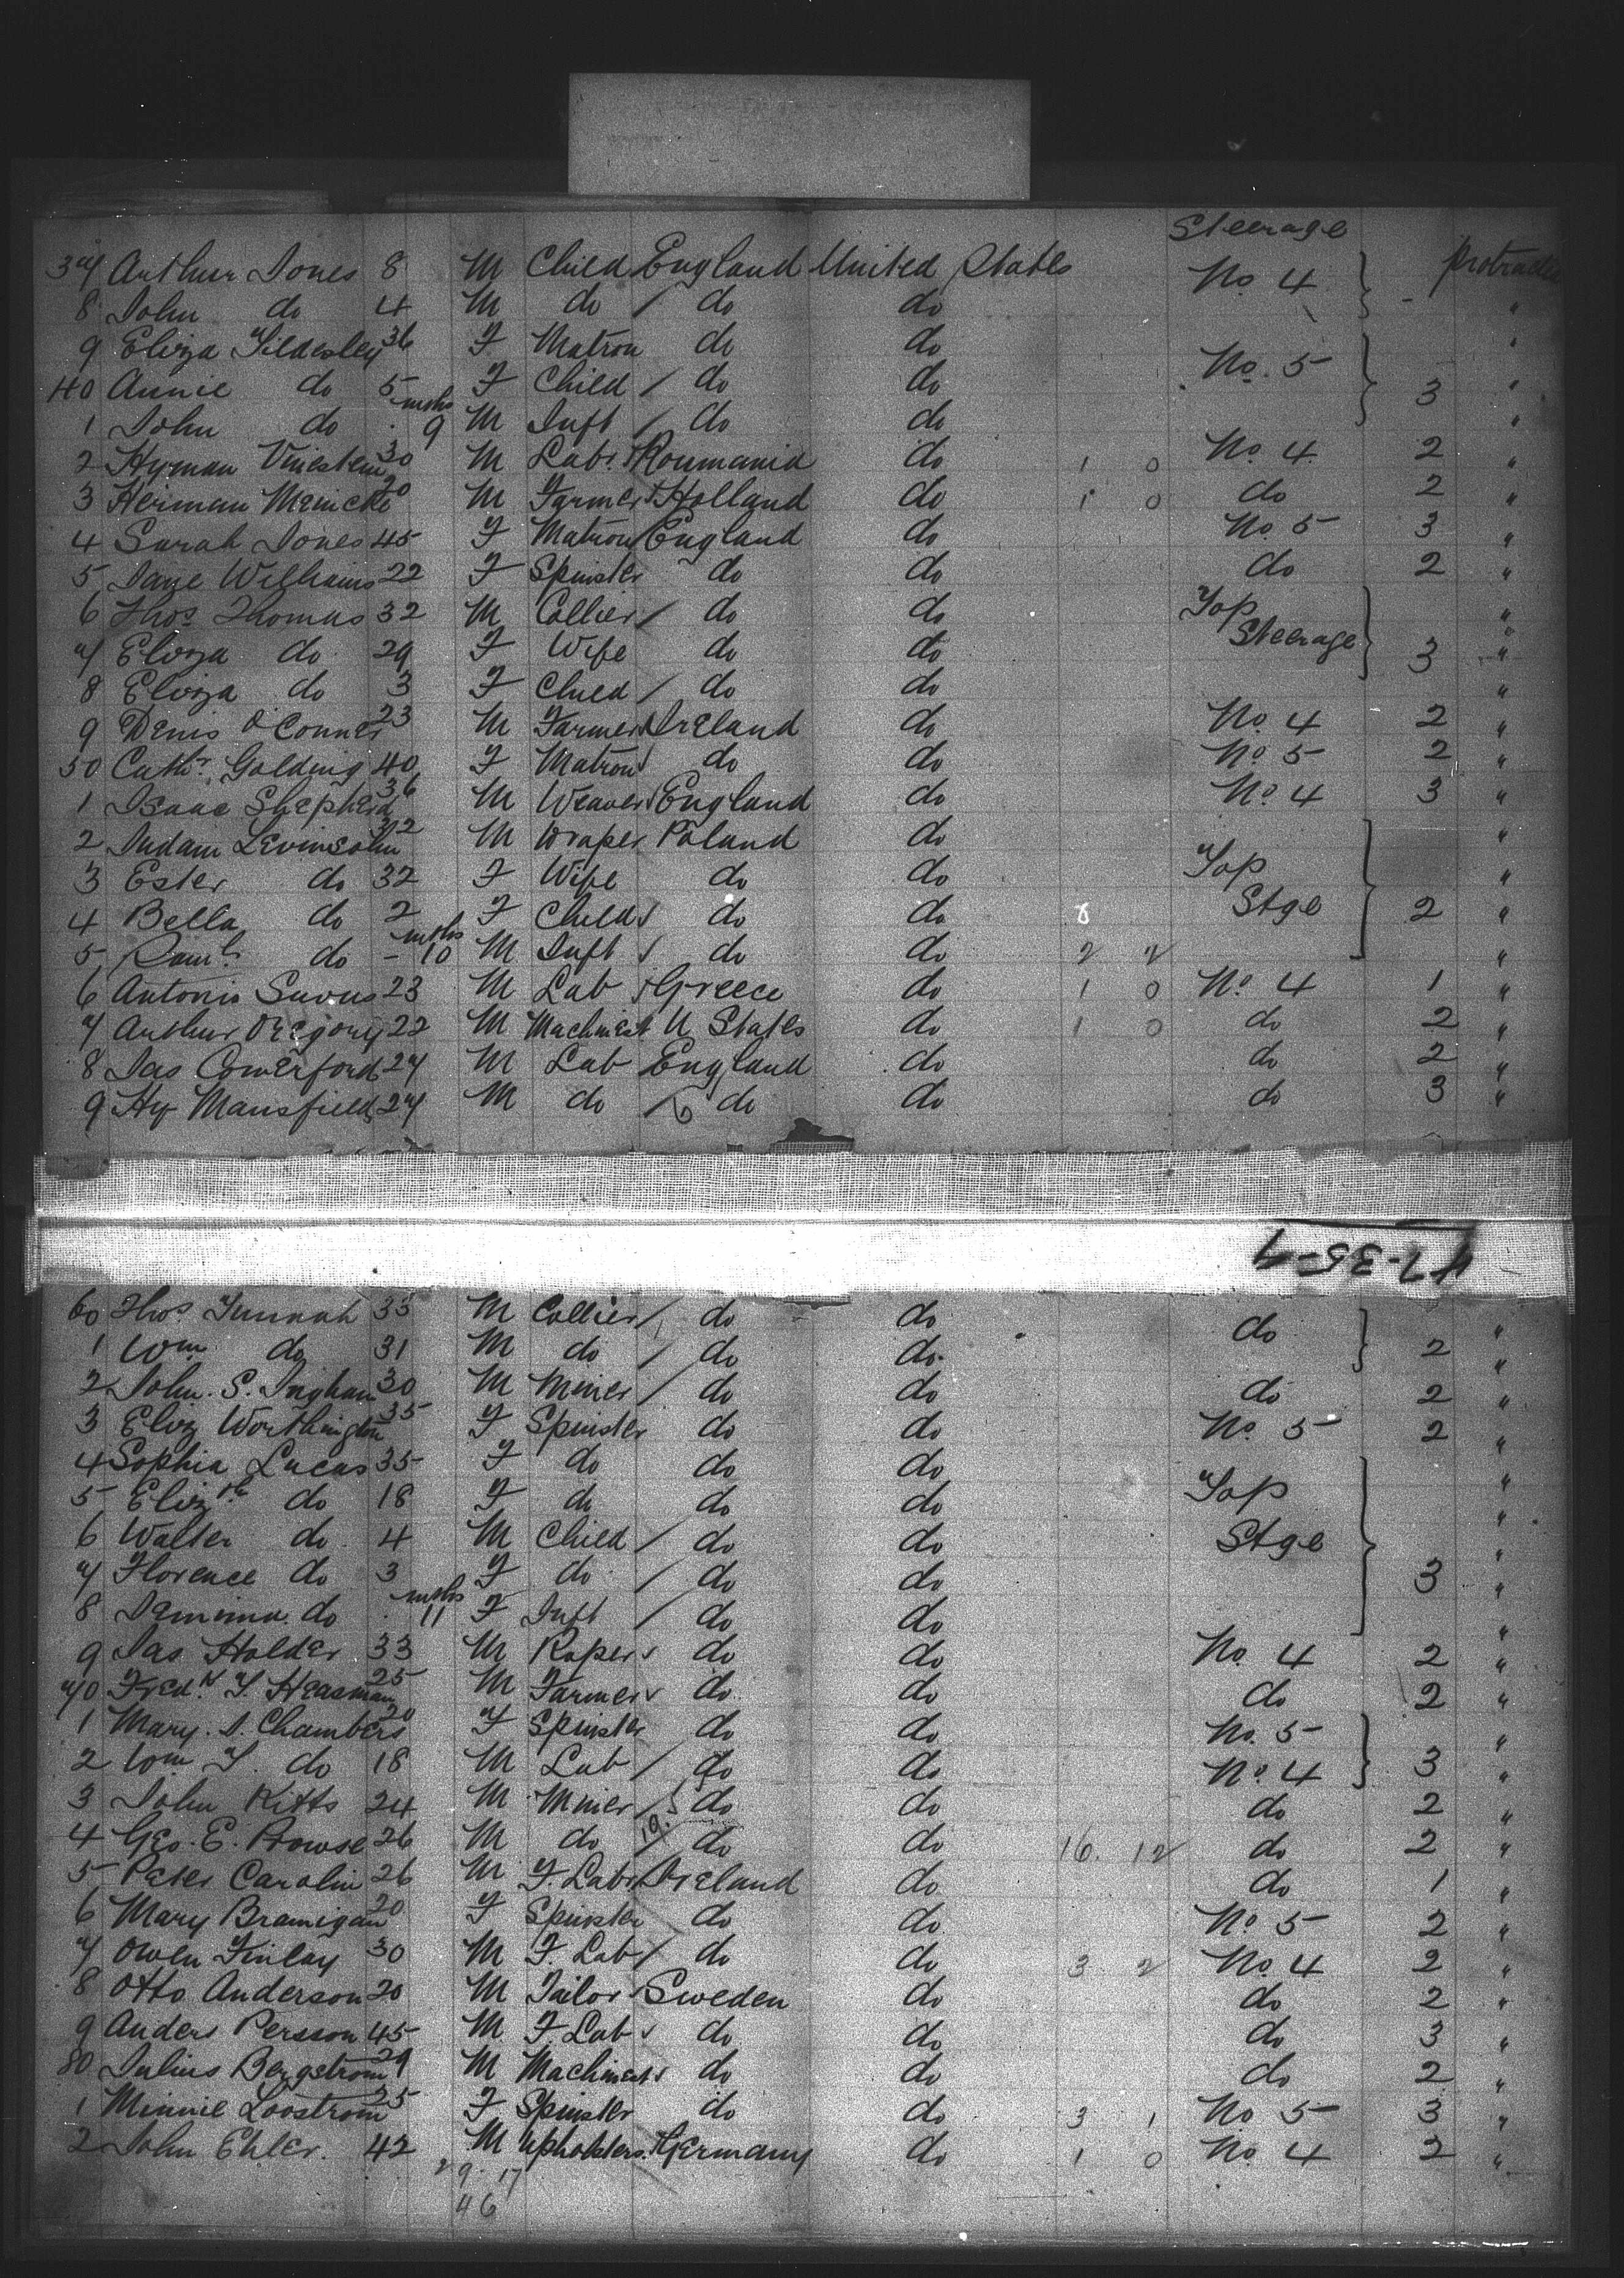 Steerage
37 Arthur Jones 8 M Child England United States No. 4 - protracted
8 John do 4 M do / do do "
9 Eliza Tildesley 36 F Matron do do No. 5 "
40 Annie do 5 F Child / do do 3 "
1 John do mths 9 M Inft / do do "
2 Hyman Vinestein 30 M Labr. Roumania do 1 0 No. 4 2 "
3 Herman Meincke 20 M Farmer Holland do 1 0 do 2 "
4 Sarah Jones 45 F Matron England do No. 5 3 "
5 Jane Williams 22 F Spinster do do do 2 "
6 Thos. Thomas 32 M Collier / do do Top "
7 Eliza do 29 F Wife do do Steerage 3 "
8 Eliza do 3 F Child / do do "
9 Denis O'Conner 23 M Farmer Ireland do No. 4 2 "
50 Cathr. Golding 40 F Matron do do No. 5 2 "
1 Isaac Shepherd 36 M Weaver England do No. 4 3 "
2 Levinsohn 32 M Draper Poland do "
3 Ester do 32 F Wife do do Top "
4 Bella do 2 F Child do do 8 Stge 2 "
5 Saml. do - mths 10 M Inft do do 2 2 "
6 Antonio 23 M Lab Greece do 1 0 No. 4 1 "
7 Arthur Gregory 22 M Machinest U States do 1 0 do 2 "
8 Jas Comerford 27 M Lab England do do 2 "
9 Hy Mansfield 27 M do / 6 do do do 3 "
47-35-7
60 Thos. Tunnah 33 M Collier / do do do "
1 Wm. do 31 M do / do do 2 "
2 John. S. Ingham 30 M Miner / do do do 2 "
3 Eliz Worthington 35 F Spinster do do No. 5 2 "
4 Sophia Lucas 35 F do do do "
5 Elizth do 18 F do do do Top "
6 Walter do 4 M Child / do do Stge "
7 Florence do 3 F do / do do 3 "
8 Jemima do mths 11 F Inft / do do "
9 Jas Holder 33 M Roper do do No. 4 2 "
70 Fredk. T. Heasman 25 M Farmer do do do 2 "
1 Mary. A. Chambers 20 F Spinster do do No. 5 "
2 Wm T. do 18 M Lab / do do No. 4 3 "
3 John Kitts 24 M Miner / do do do 2 "
4 Geo. E. Prowse 26 M do 19. / do do 16. 12 do 2 "
5 Peter Carolin 26 M F. Labr Ireland do do 1 "
6 Mary Bramigan 20 F Spinster do do No. 5 2 "
7 Owen Finlay 30 M F. Lab / do do 3 2 No. 4 2 "
8 Otto Anderson 20 M Tailor Sweden do do 2 "
9 Anders Persson 45 M. F. Lab do do do 3 "
80 Julius Bergstrom 29 M Machinest do do do 2 "
1 Minnie Loostrom 25 F Spinster do do 3 1 No 5 3 "
2 John Ehler. 42 M Upholsterr. Germany do 1 0 No. 4 2 "
29. 17
46